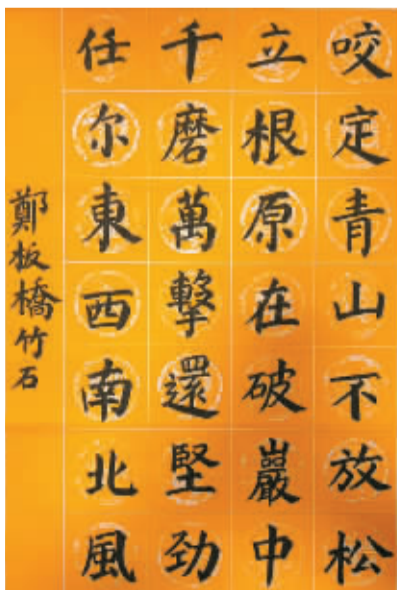 咬定青山不放松
立根原在破巖中
千磨萬擊還堅劲
任尔東西南北風
鄭板橋竹石